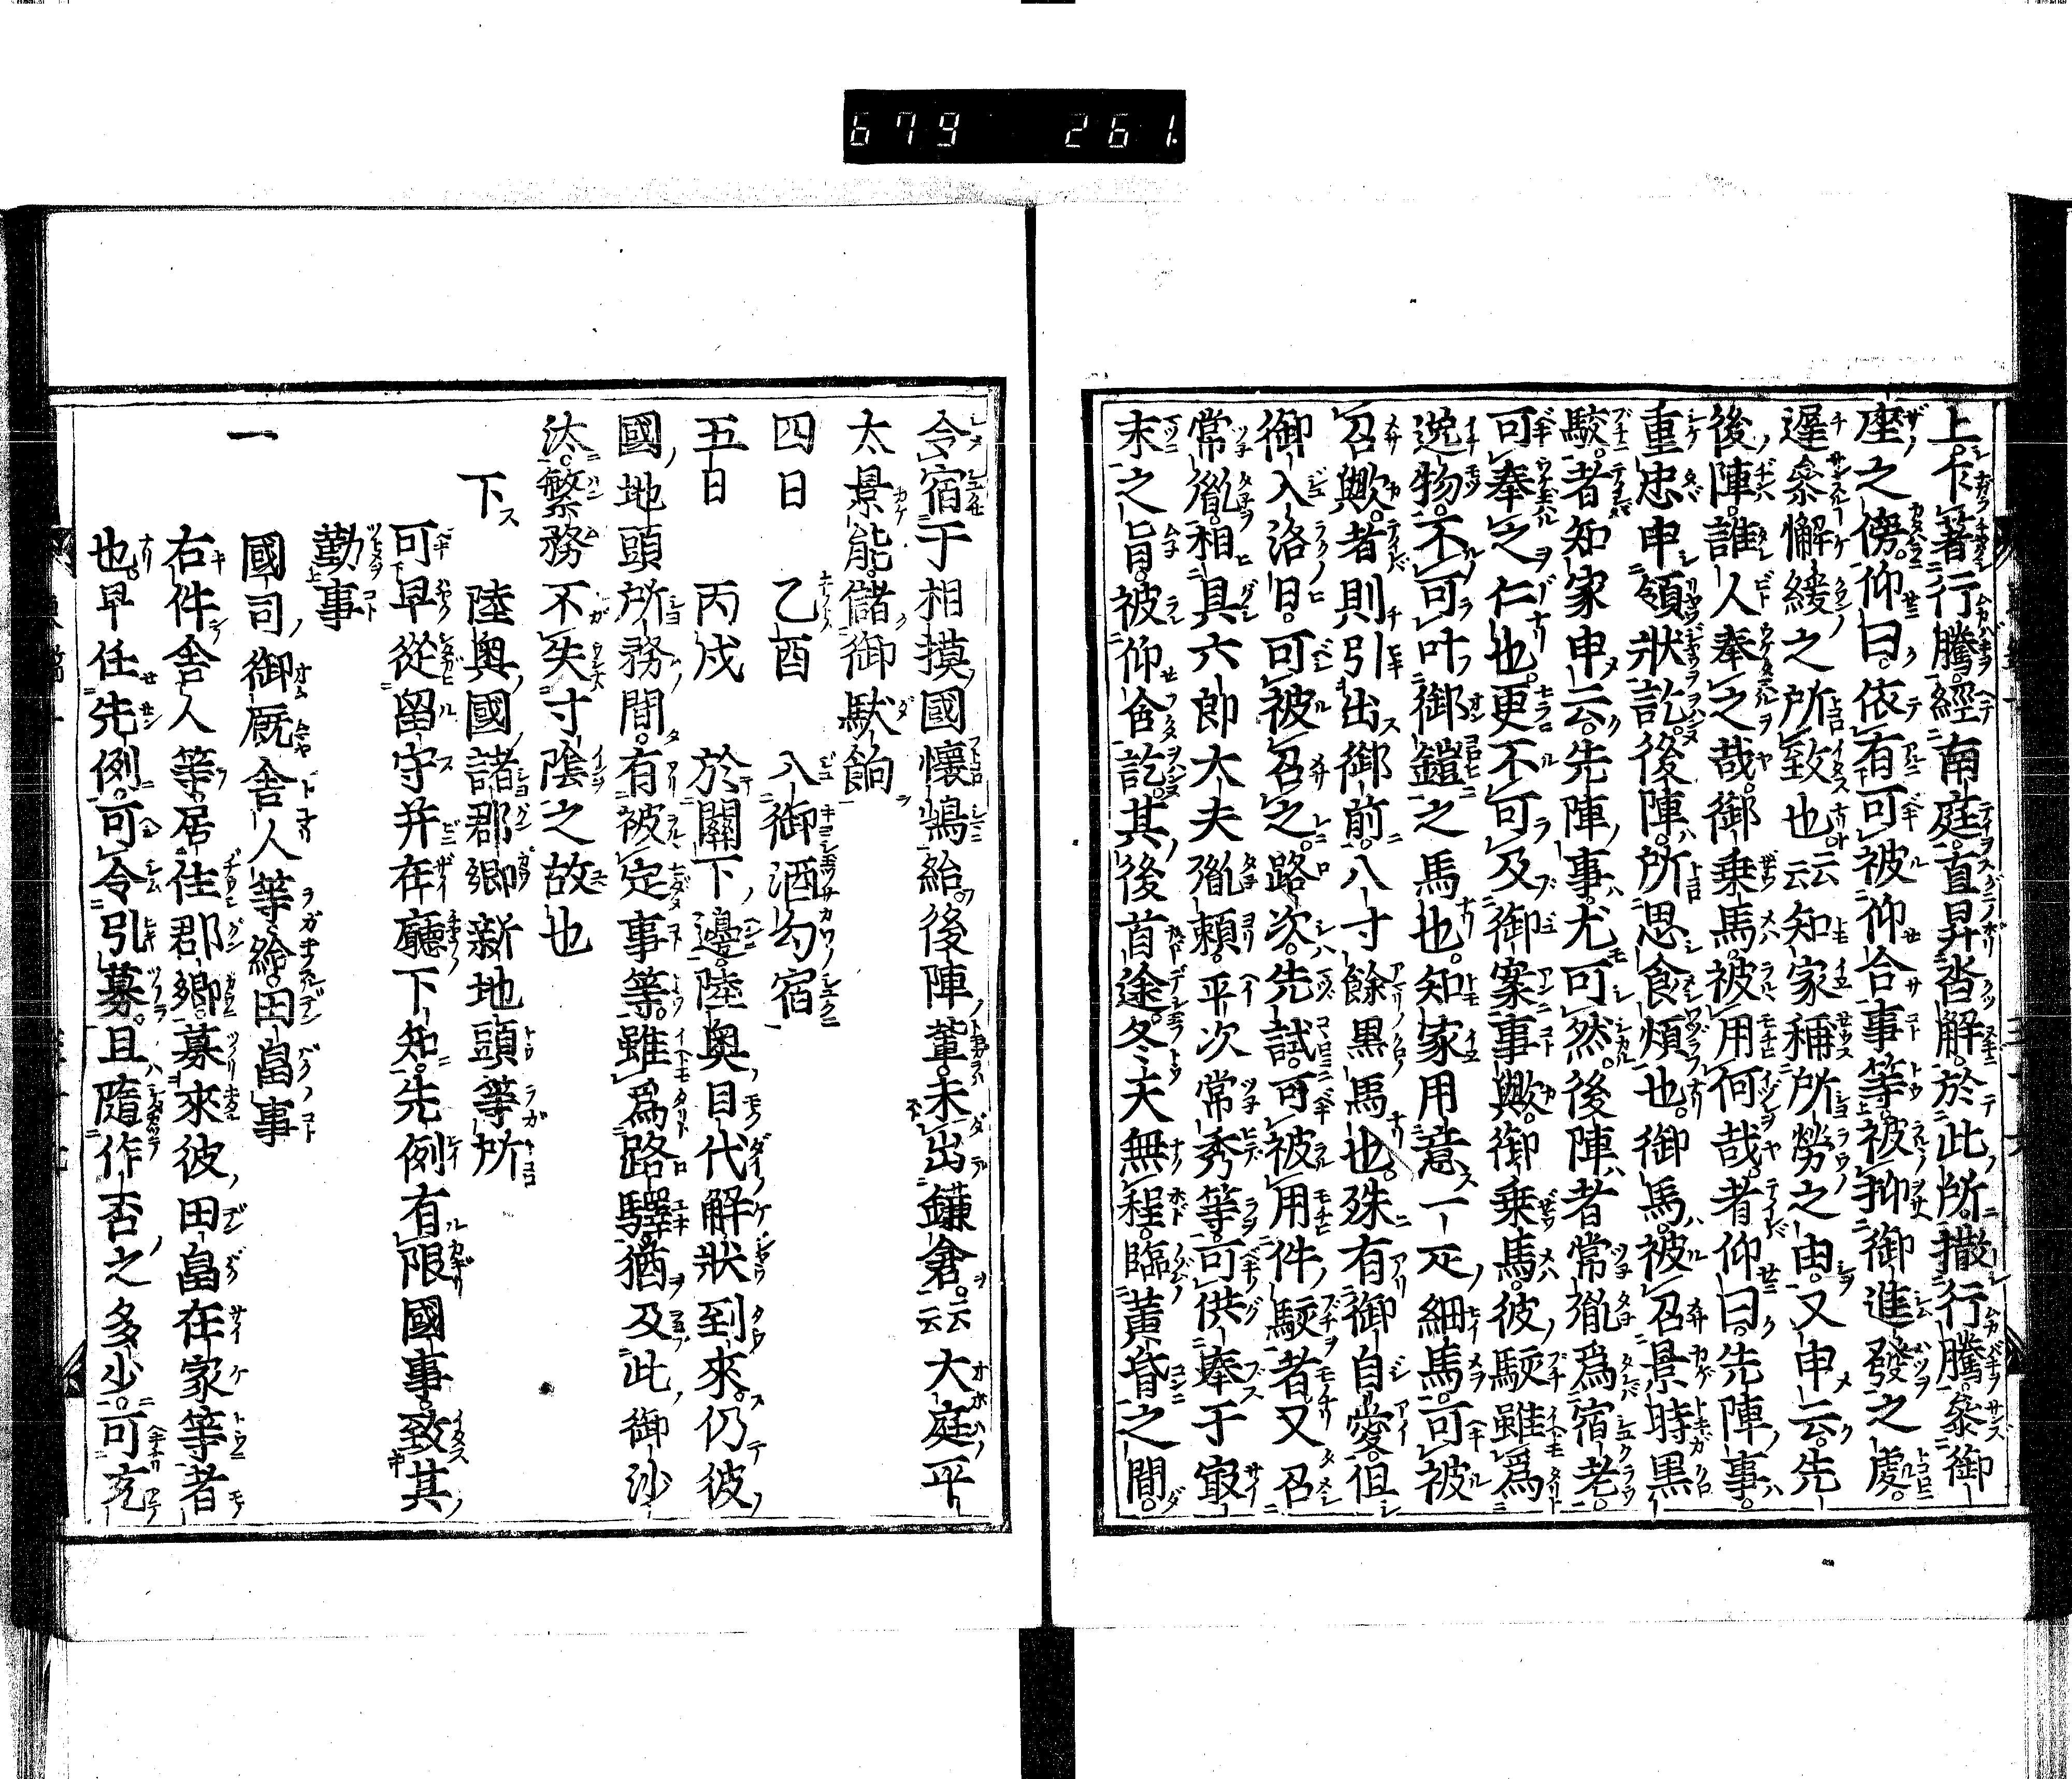 679 261.
上。乍著行騰。經南庭。直昇沓解。於此所。撒行騰。參御
座之傍。仰曰。依有可被仰合事等。被抑御進發之處。
遲參懈緩之所致也。云云知家稱所勞之由。又申云。先
後陣。誰人奉之哉。御乗馬。被用何哉。者仰曰。先陣事。
重忠申領狀訖。後陣。所思食煩也。御馬。被召景時黒
駮。者知家申云。先陣事。尤可然。後陣者常胤爲宿老。
可奉之仁也。更不可及御案事歟。御乗馬。彼駮雖爲
逸物。不可叶御鎧之馬也。知家用意一疋細馬。可被
召歟。者則引出御前。八寸餘黒馬也。殊有御自愛。但
御入洛日。可被召之。路次。先試可被用件駮者又召
常胤。相具六郎大夫胤頼。平次常秀等。可供奉于㝡
末之旨。被仰含訖。其後首途。冬天無程。臨黄昏之間。
令宿于相摸國懷嶋給。後陣輩未出鎌倉。云云大庭平
太景能。儲御駄餉
四日　乙酉　入御酒匂宿
五日　丙戌　於關下邊。陸奥目代解狀到來。仍彼
國地頭所務間。有被定事等。雖爲路驛。猶及此御沙
汰。繁務不失寸陰之故也
下　陸奥國諸郡郷新地頭等所
可早從留守并在廳下知。先例有限國事。致其
勤事
一　國司御厩舎人等給。田畠事
右件舎人等。居住郡郷。募來彼田畠在家等者
也。早任先例。可令引募。且隨作否之多少。可充